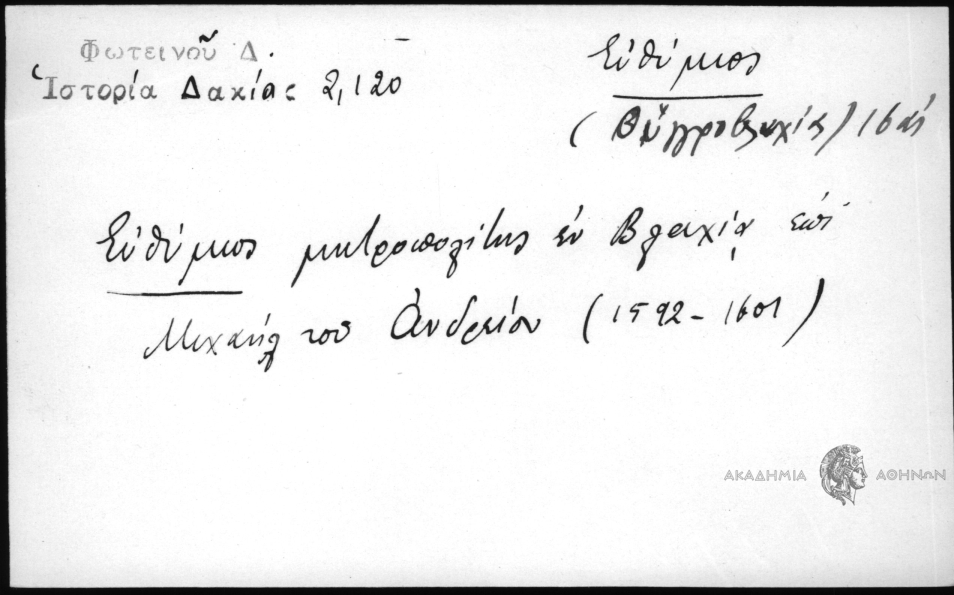 Φωτεινοῦ Δ.
Ἱστορία Δακίας 2,120
Εὐθύμιος
(Οὑγγροβλαχίας) 16 αἰ
Εὐθύμιος μητροπολίτης ἐν Βλαχίᾳ ἐπὶ
Μιχαήλ τοῦ Ἀνδρείου (1592-1601)
ΑΚΑΔΗΜΙΑ ΑΘΗΝΩΝ